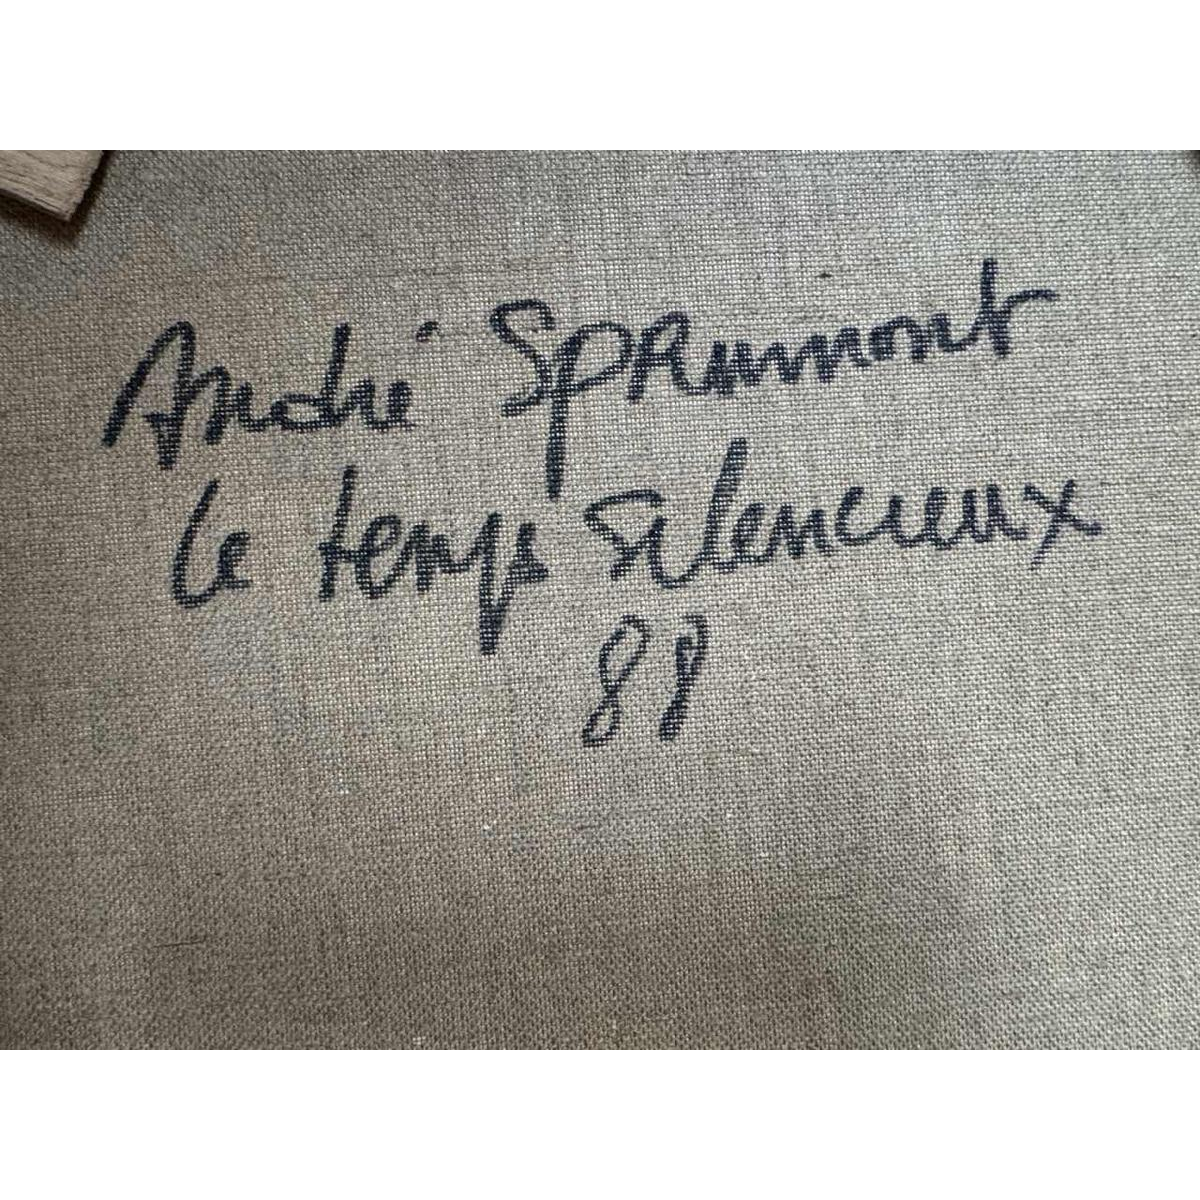 André Sprumont
Le temps silencieux
88